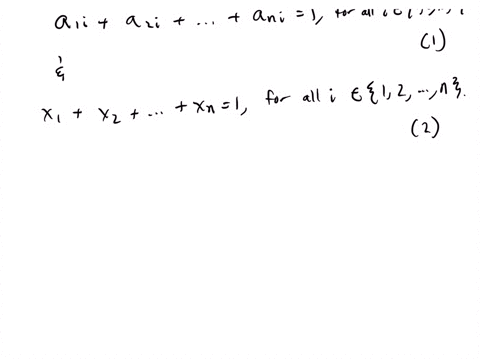 a₁ᵢ + a₂ᵢ + ... + aₙᵢ = 1, for all i ∈
(1)
&
x₁ + x₂ + ... + xₙ = 1, for all i ∈ {1, 2, ..., n}.
(2)